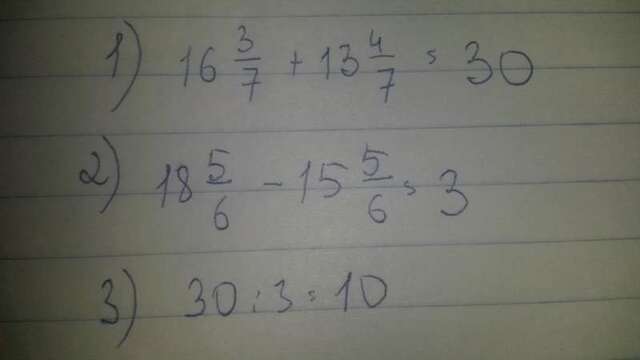 1) 16 3/7 + 13 4/7 = 30
2) 18 5/6 - 15 5/6 = 3
3) 30 : 3 = 10